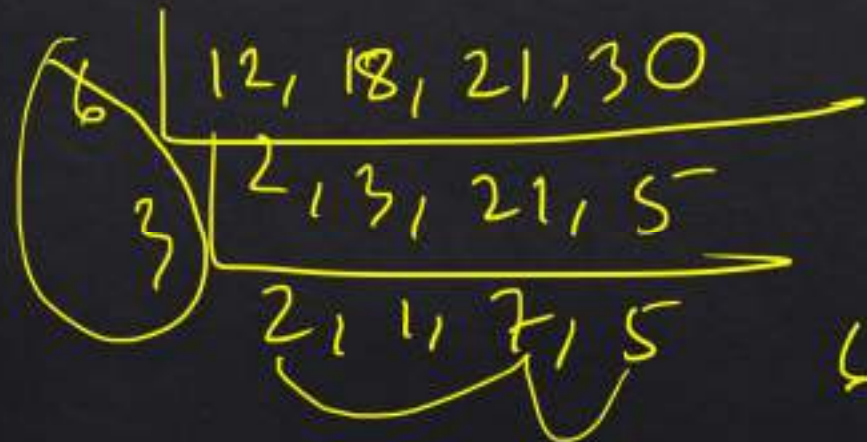 6 | 12, 18, 21, 30
3 | 2, 3, 21, 5
2, 1, 7, 5